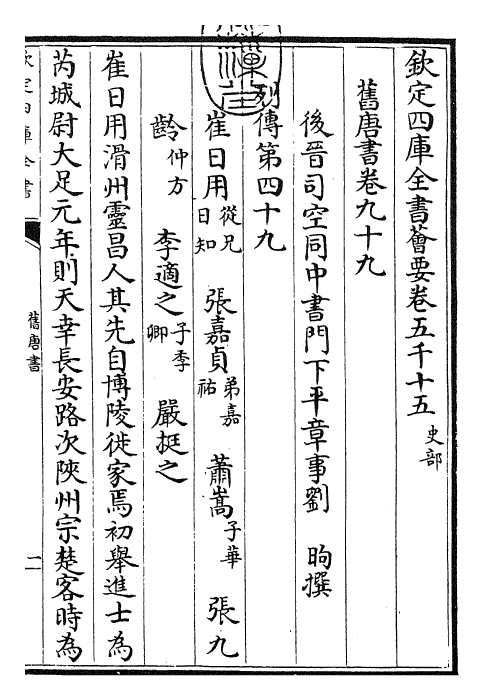 欽定四庫全書薈要卷五千十五 史部
舊唐書卷九十九
後晉司空同中書門下平章事劉 昫撰
列傳第四十九
崔日用 從兄日知 張嘉貞 弟嘉祐 蕭嵩 子華 張九
齡 仲方 李適之 子季卿 嚴挺之
崔日用滑州靈昌人其先自博陵徙家焉初舉進士為
芮城尉大足元年則天幸長安路次陝州宗楚客時為
欽定四庫全書
舊唐書
一